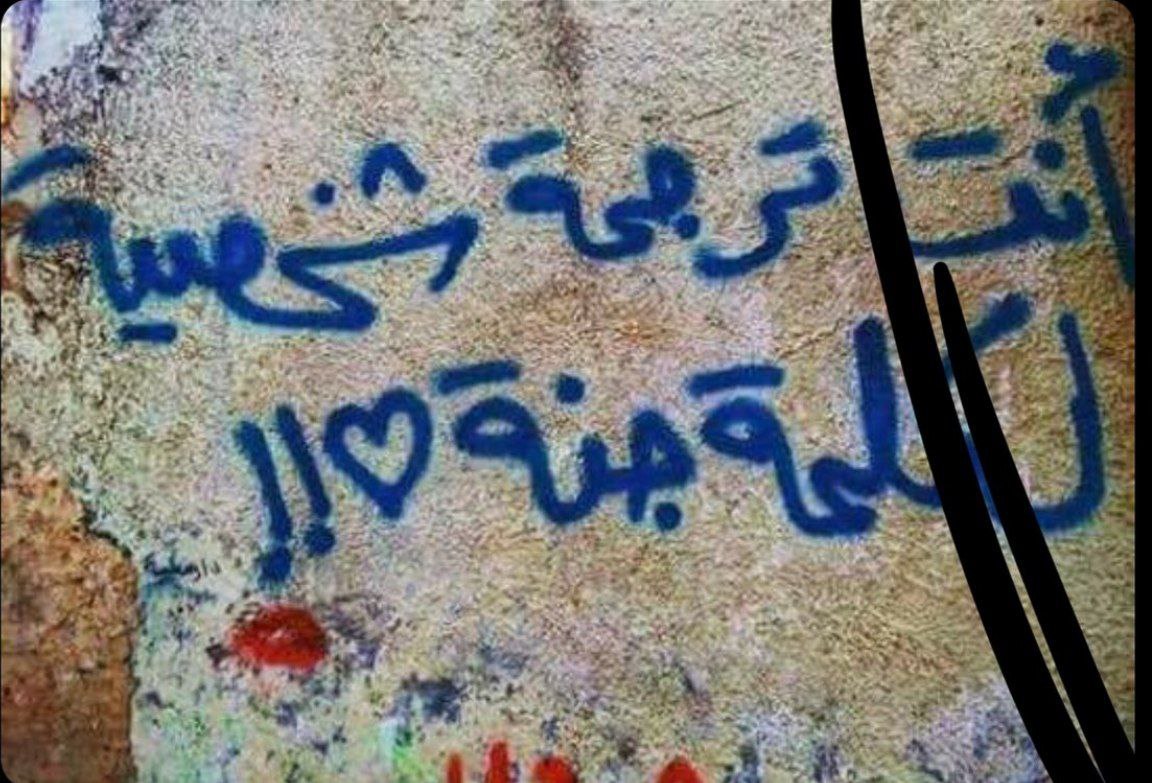 أنت ترجمة شخصية
لكلمة جنة ♡!!